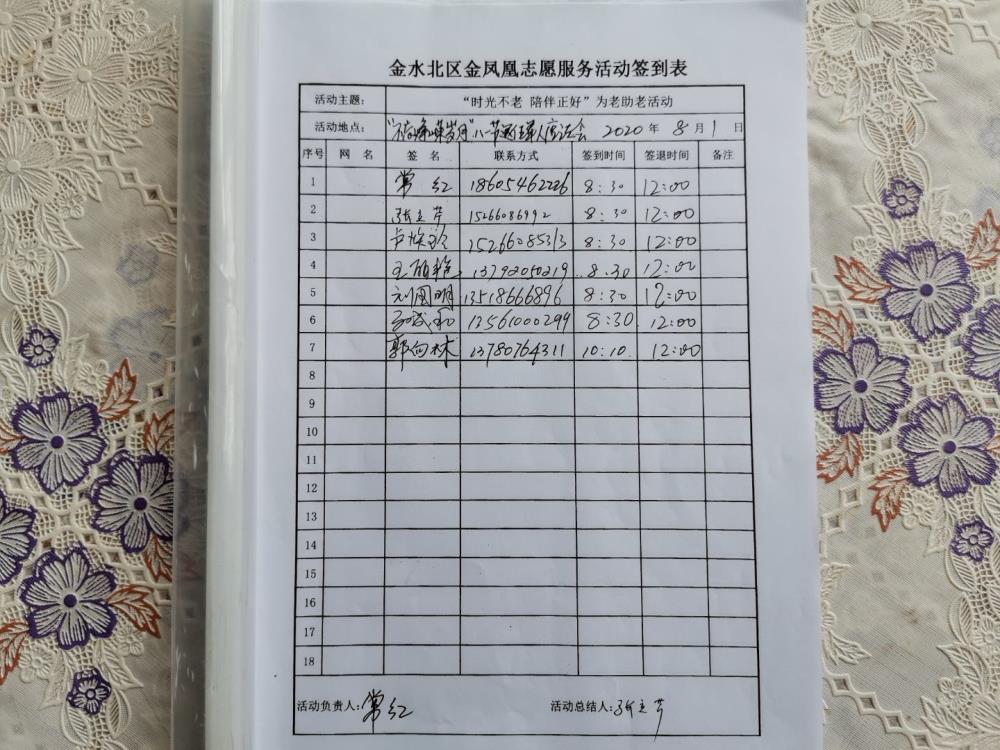 金水北区金凤凰志愿服务活动签到表
活动主题： “时光不老 陪伴正好”为老助老活动
活动地点： 峥嵘岁月”八一节 军人座谈会 2020年8月1日
序号 网 名 签 名 联系方式 签到时间 签退时间 备注
1 常红 18605462226 8:30 12:00
2 张立芹 15266086992 8:30 12:00
3 卢 15266085313 8:30 12:00
4 王丽艳 13792050219 8:30 12:00
5 刘国明 13518666896 8:30 12:00
6 13561000299 8:30 12:00
7 郭向林 13780764311 10:10 12:00
8
9
10
11
12
13
14
15
16
17
18
活动负责人：常红 活动总结人：张立芹